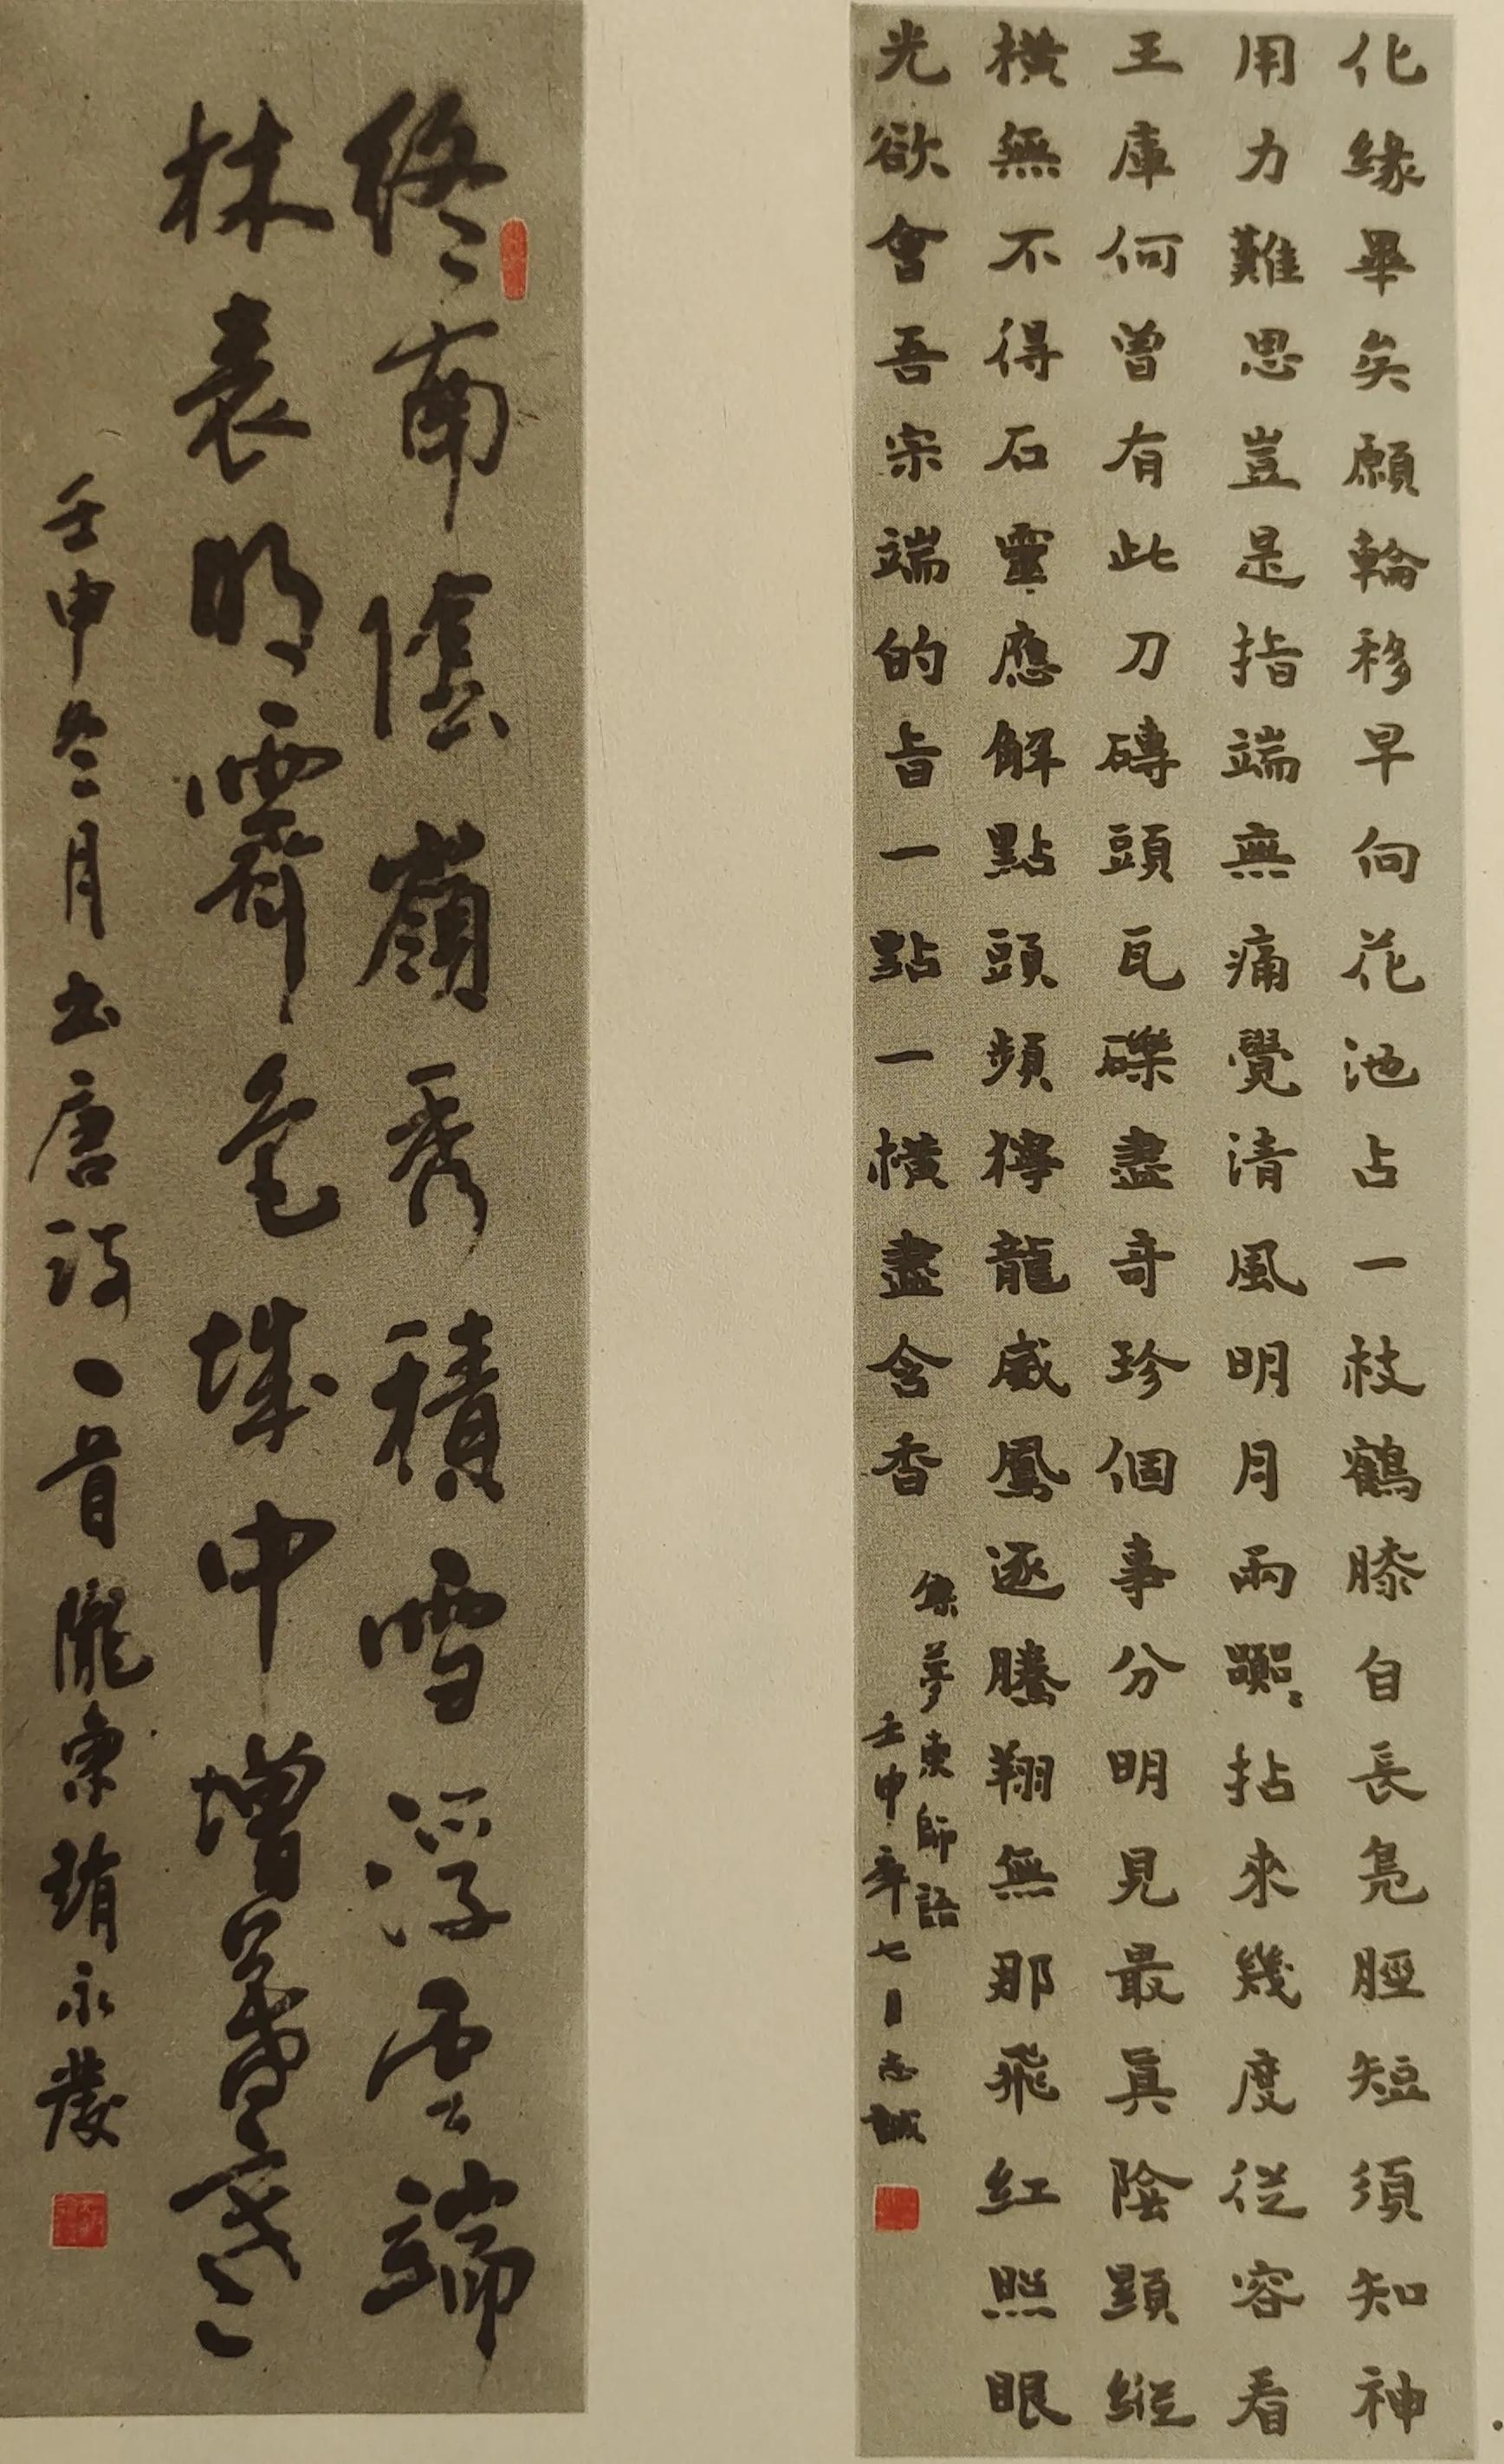 化緣畢矣願輪移早向花池占一枝鶴膝自長鳧脛短須知神
用力難思豈是指端無痛覺清風明月兩拈來幾度從容看
王庫何曾有此刀磚頭瓦礫盡奇珍個事分明見最真陰顯縱
橫無不得石靈應解點頭頻獰龍威鳳逐騰翔無那飛紅照眼
光欲會吾宗端的旨一點一橫盡含香
集夢東師語
壬申年七月志誠
終南陰嶺秀積雪浮雲端
林表明霽色城中增暮寒
壬申冬月书唐诗一首隴東靖永發